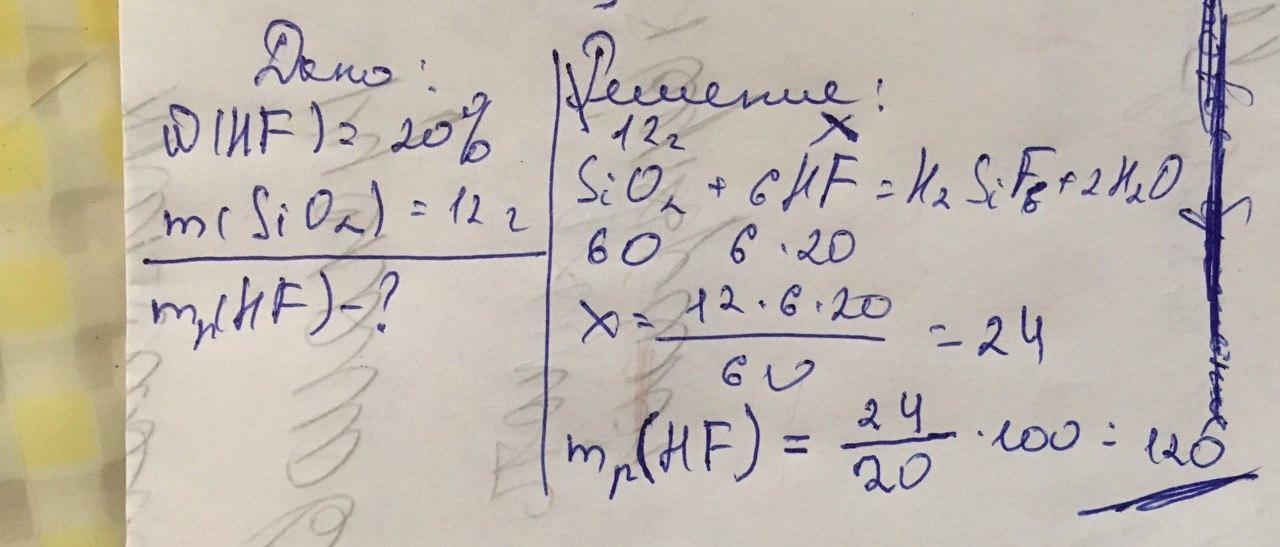 Дано:
ω(HF) = 20%
m(SiO₂) = 12 г
mр(HF) - ?
Решение:
12 г x
SiO₂ + 6HF = H₂SiF₆ + 2H₂O
60 6 · 20
x = 12 · 6 · 20 / 60 = 24
mр(HF) = 24 / 20 · 100 = 120